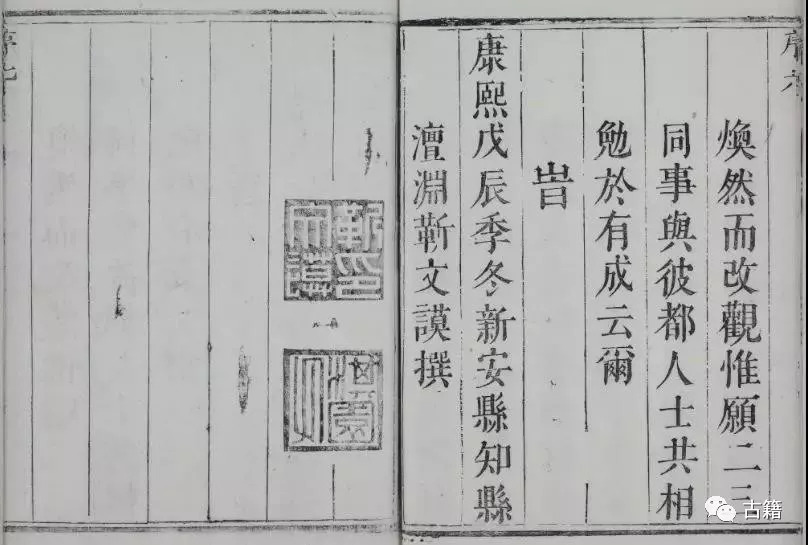 序六
煥然而改觀惟願二三
同事與彼都人士共相
勉於有成云爾
旹
康熙戊辰季冬新安縣知縣
澶淵靳文謨撰
序七
古籍